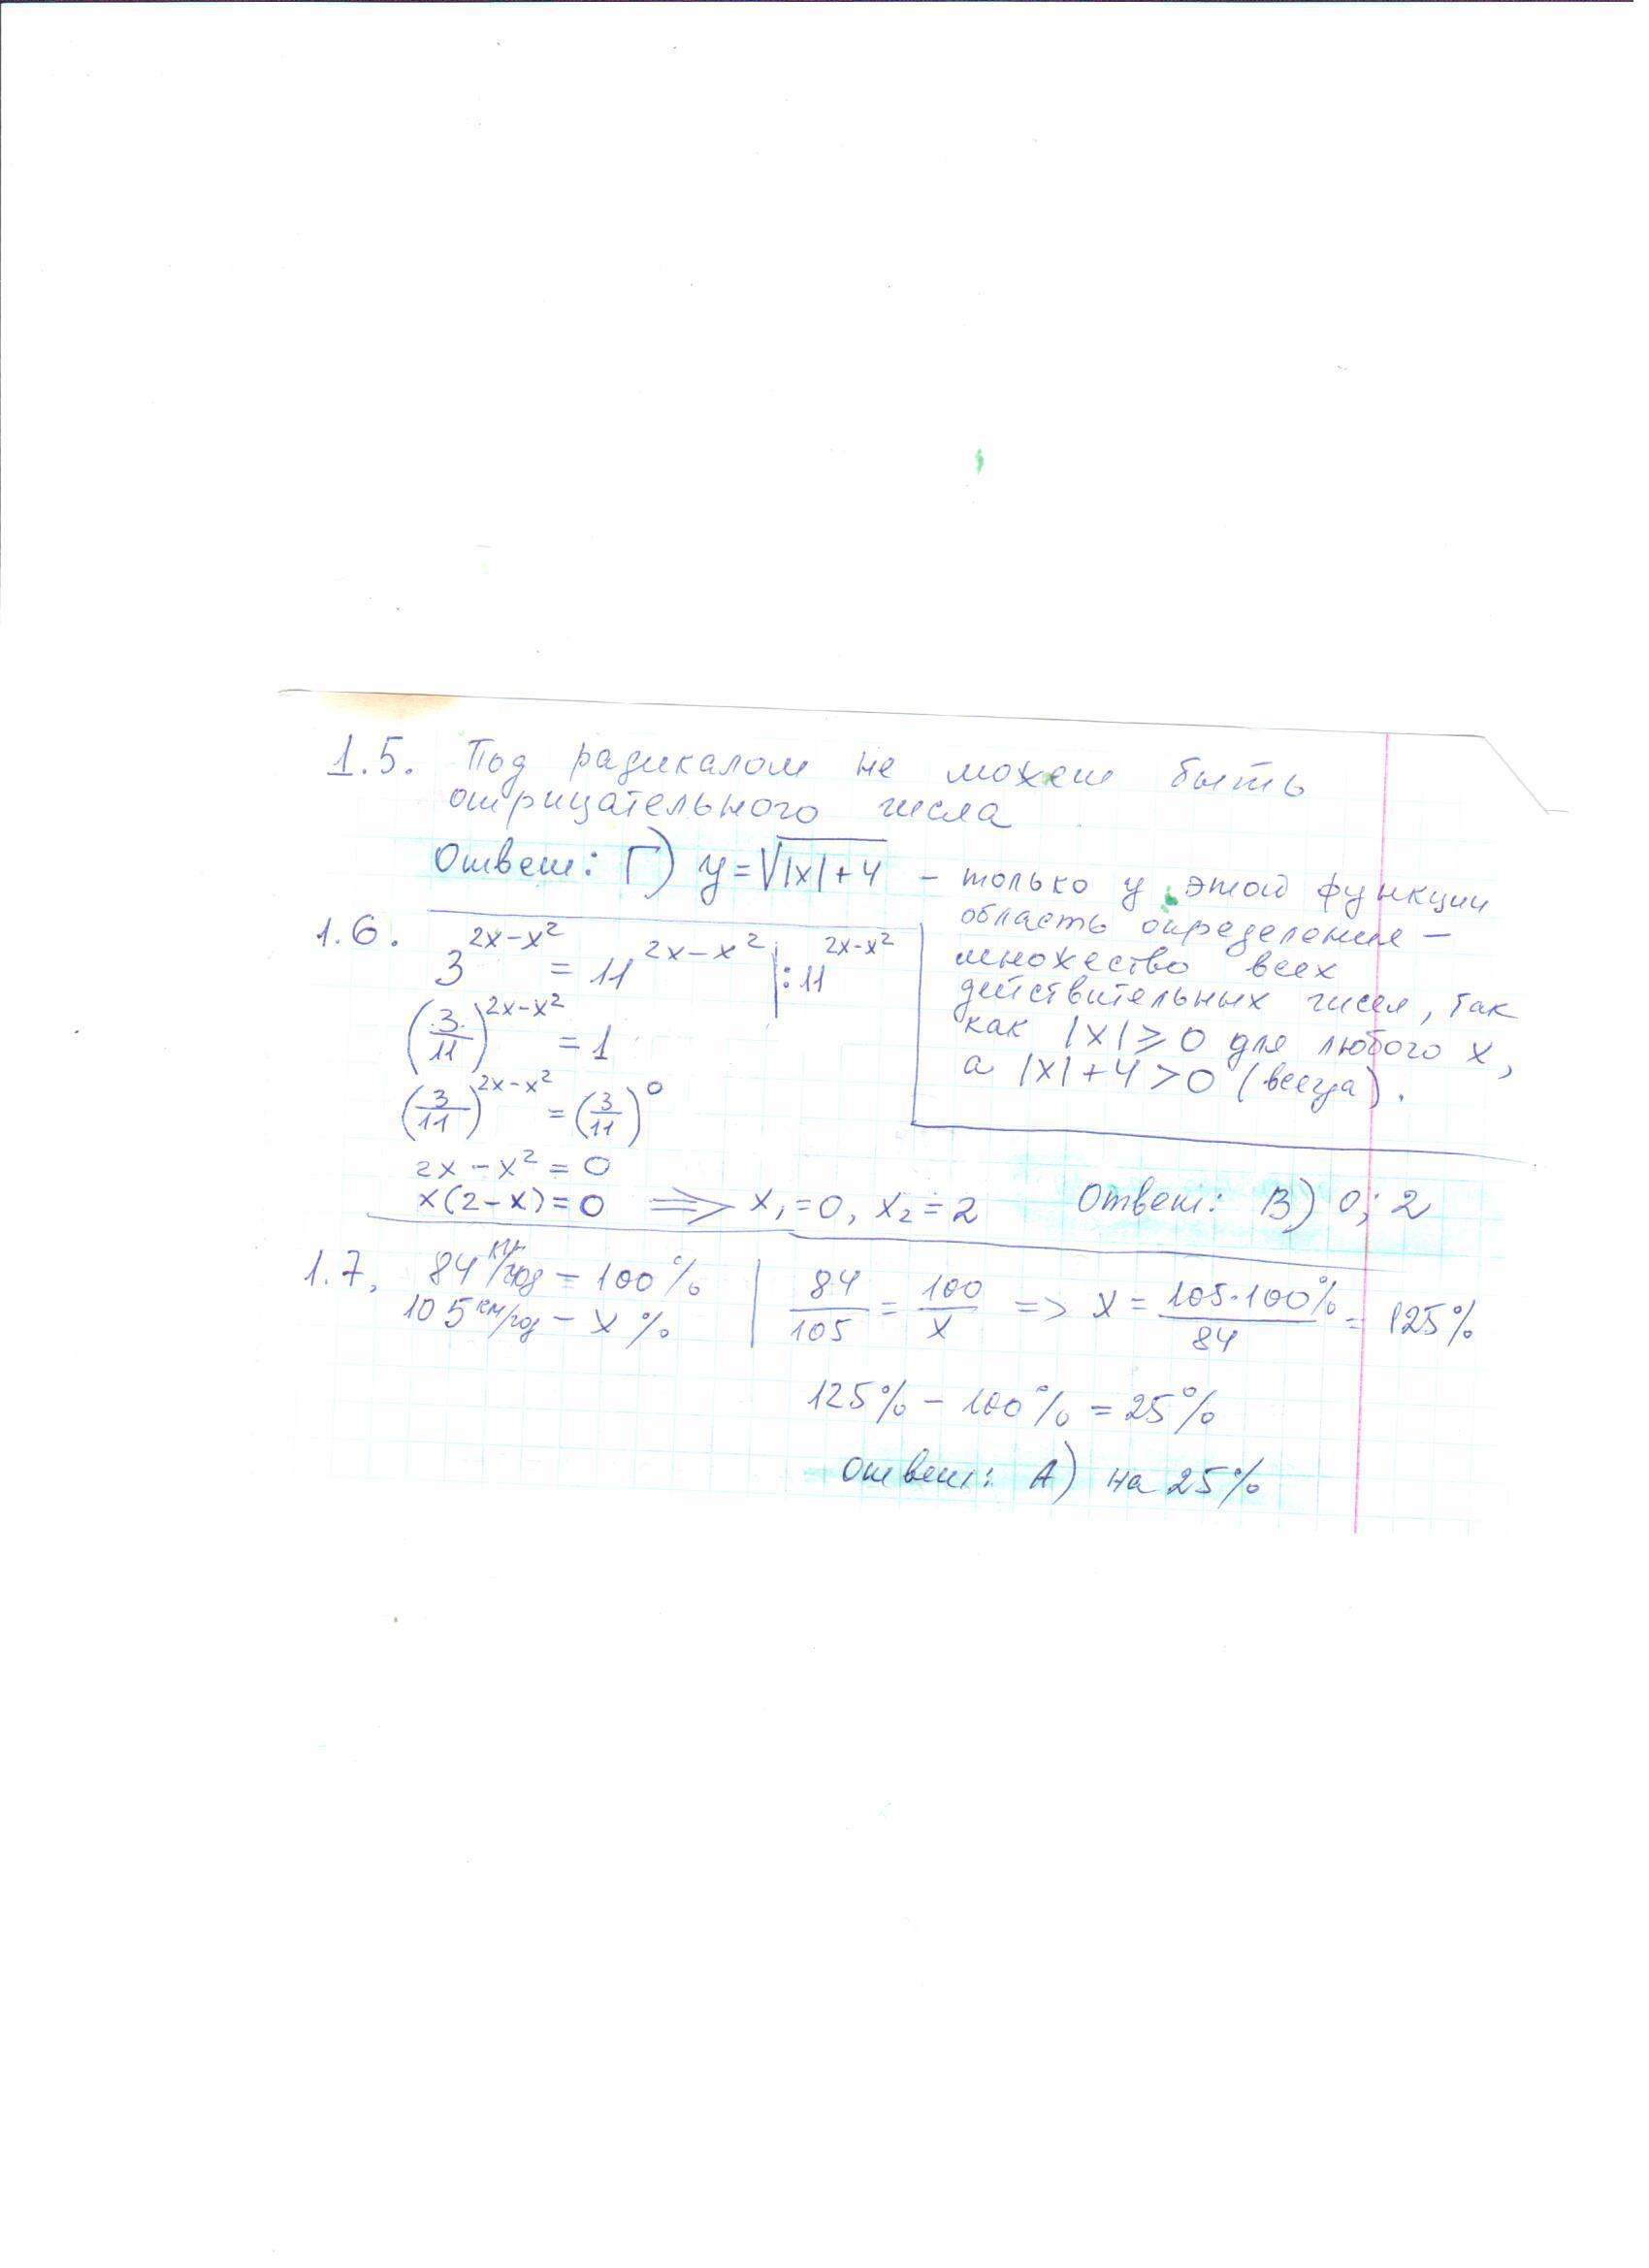 1.5. Под радикалом не может быть
отрицательного числа
Ответ: Г) y=√|x|+4 – только у этой функции
область определения –
множество всех
действительных чисел, так
как |x|≥0 для любого x,
а |x|+4>0 (всегда).
1.6. 3^{2x-x²} = 11^{2x-x²} |:11^{2x-x²}
(3/11)^{2x-x²} = 1
(3/11)^{2x-x²} = (3/11)^0
2x-x²=0
x(2-x)=0 ⟹ x₁=0, x₂=2 Ответ: В) 0; 2
1.7. 84 км/год – 100%
105 км/год – x %
84/105 = 100/x => x = 105·100%/84 = 125%
125% – 100% = 25%
Ответ: А) на 25%